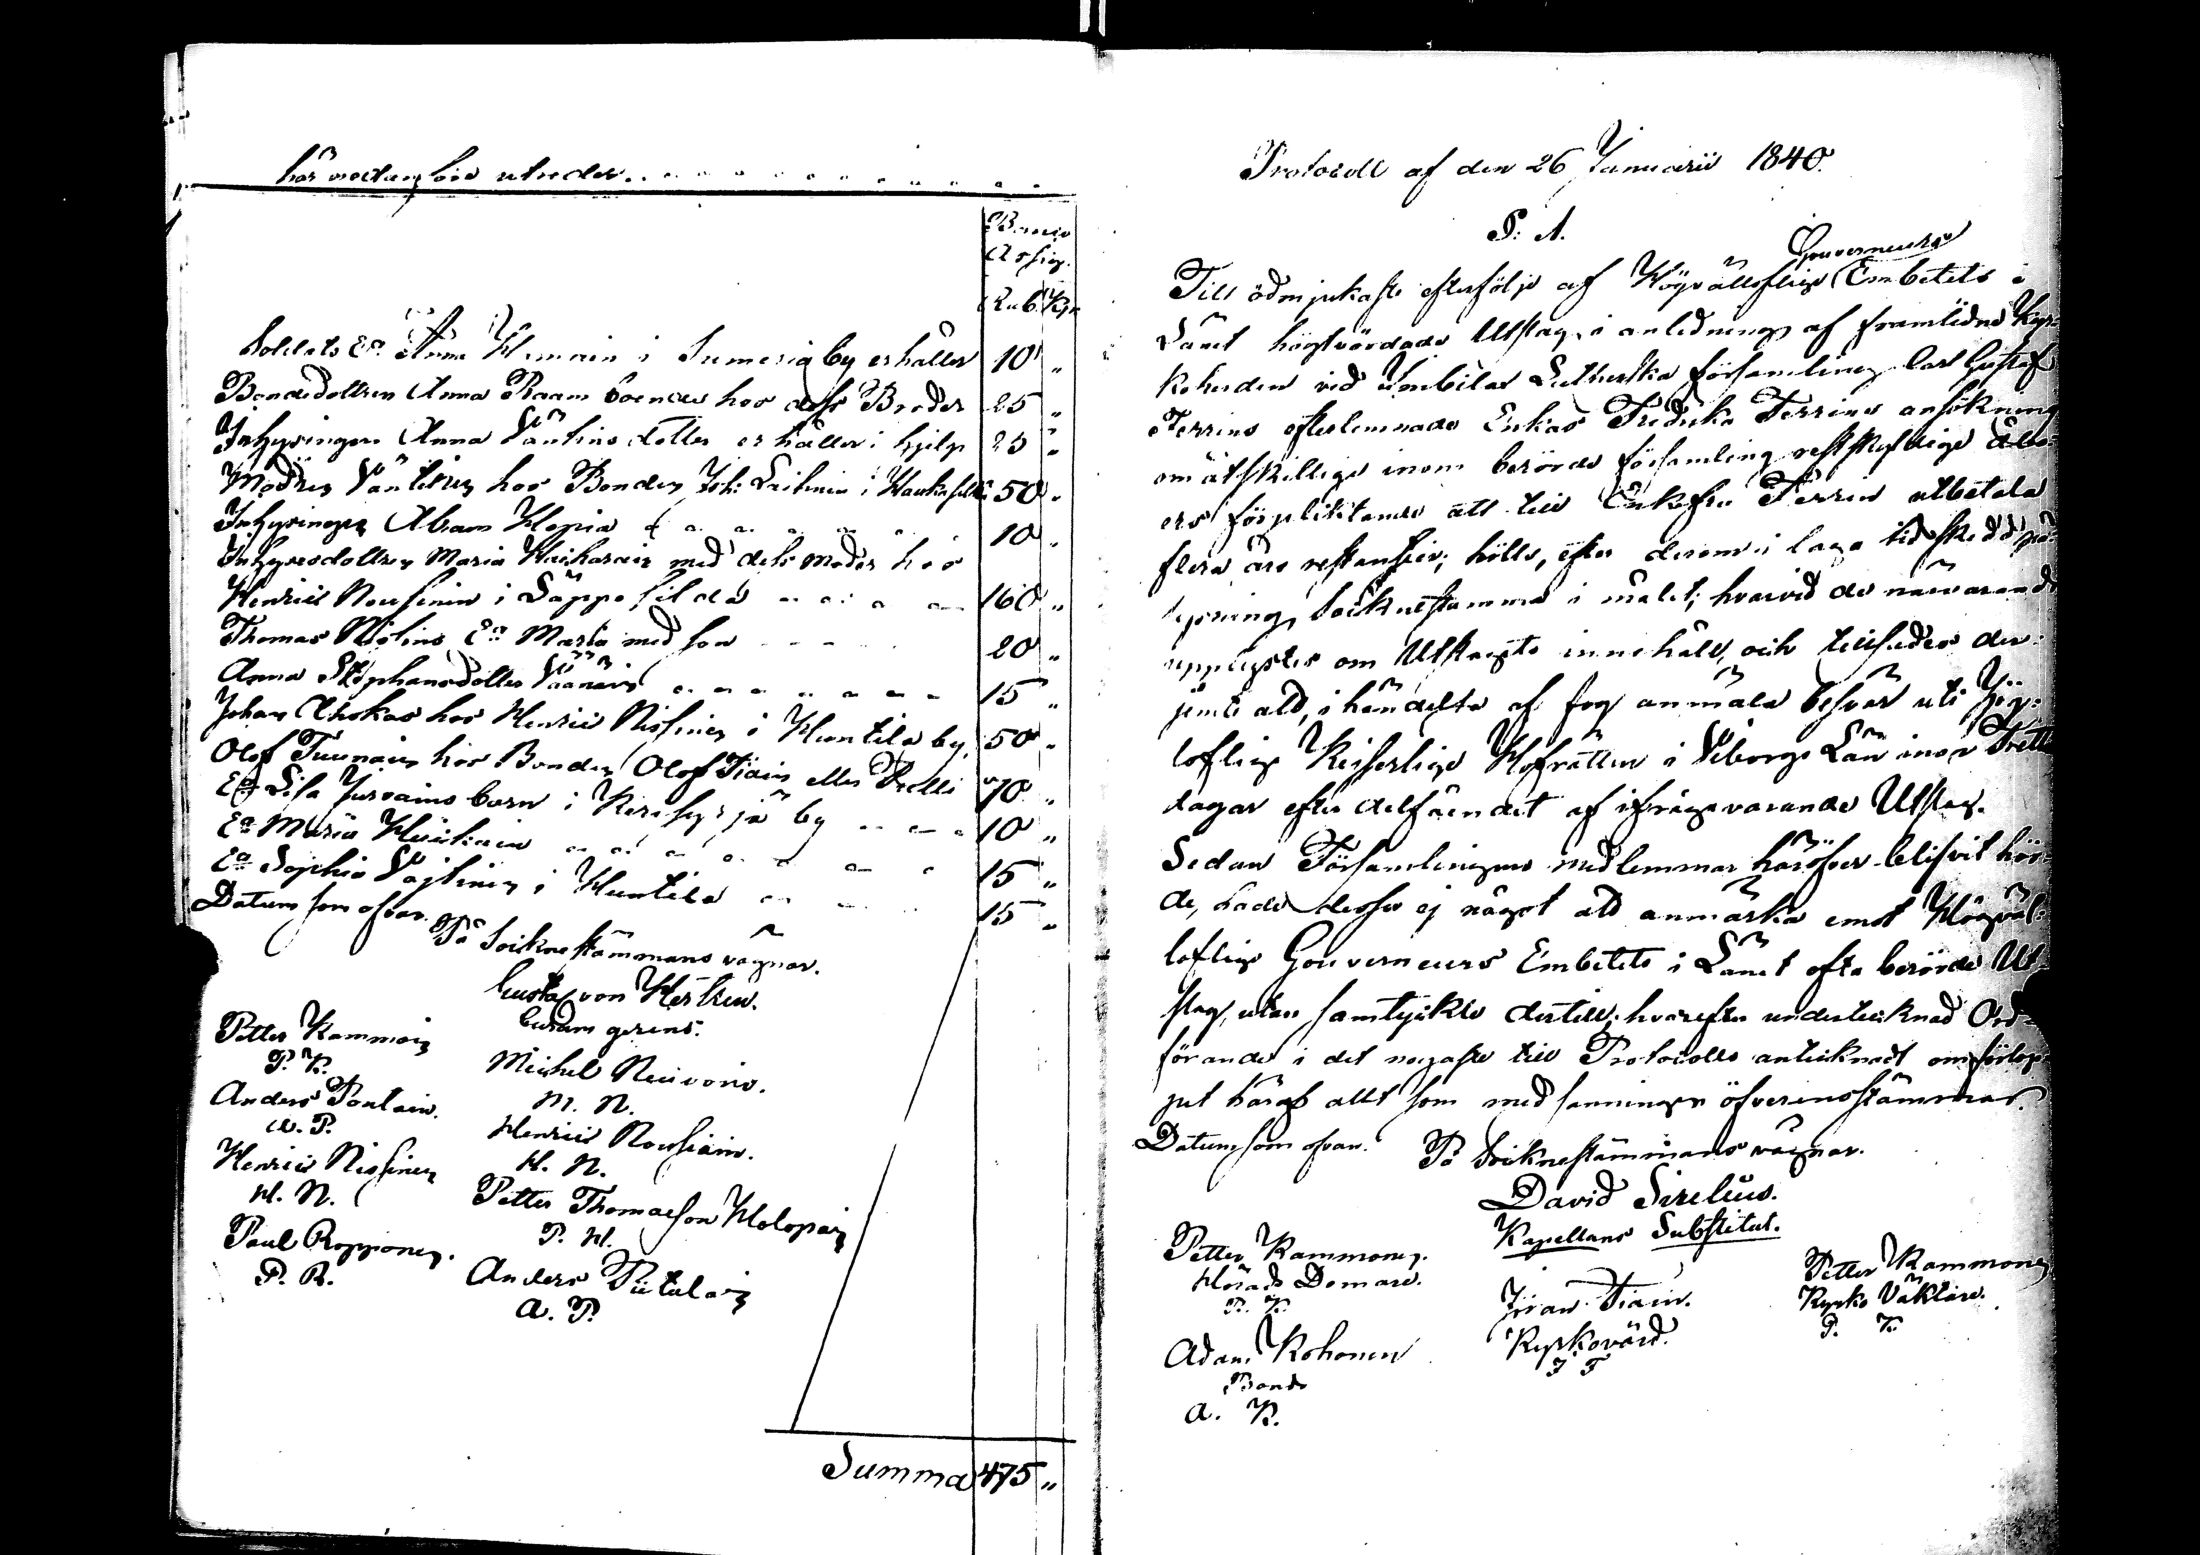 här nedanföre utredes
Banco
Assign.
Rub. Kop.
Soldats Ea. Anna Hemain i Sumeria by erhåller 10 "
Bondedottren Anna Raam boende hos dess Broder 25 "
Inhysingen Anna Väntins dotter erhåller i hjelp 25 "
Modren Väntinen hos Bonden Joh: Laitinen i Haukaselkä 50 "
Inhysingen Abram Hopia 10 "
Inhysesdottren Maria Kaiharain med dess moder hos
Henric Nousinen i Säppä silda 160 "
Thomas Niolins Ea Maria med son 20 "
Anna Stephansdotter Väänäin 15 "
Johan Ahokas hos Henric Nissinen i Huntila by 50 "
Olof Tuunain hos Bonden Olof Tiain eller Prelli 70 "
Ea Lisa Jurvains barn i Kerisyrjä by 10 "
Ea Maria Huiskain 15 "
Ea Sophia Väjtinen i Huntila 15 "
Datum som ofvan.
På Soiknestämmans vägnar.
Gustaf von Hertzen.
curam gerens.
Petter Kammoin
P. K.
Michel Neuvoin.
M. N.
Anders Poutain.
A. P.
Henric Nousiain.
H. N.
Henric Nissinen
H. N.
Petter Thomasson Holopain
P. H.
Paul Ropponen.
P. R.
Anders Piitulain
A. P.
Summa 475 "
Protocoll af den 26 Januarii 1840.
S. A.
Till ödmjukaste efterfölje af Högvällofliga Gouverneurs Embetets i
Länet högtvördade Utslag, i anledning af framlidne Kyr-
koherden vid Imbilax Lutherska församling Carl Gustaf
Ferrins efterlemnade Enkas Fredrika Ferrins ansökning
om åtskillige inom berörde församling restskyldige åbo-
ers förpliktande att till Enkefru Ferrin utbetala
flera års restantier; hölls, efter derom i laga tid skedd på-
lysning, Soiknestämma i målet; hvarvid de närvarande
upplystes om Utslagets innehåll, och tillsades der-
jemte att, i händelse af fog anmäla besvär uti Hög-
loflige Kejserlige Hofrätten i Viborgs Län inom Trettio
dagar efter delfåendet af ifrågavarande Utslag.
Sedan Församlingens medlemmar häröfver blifvit hör-
de, hade desse ej något att anmärka emot Högväl-
loflige Gouverneurs Embetets i Länet ofta berörde Ut-
slag, utan samtyckte dertill; hvarefter undertecknad Ord-
förande i det nogaste till Protocolls antecknadt omförlop-
pet häraf allt som med sanningen öfverensstämmer.
Datum som ofvan. På Soiknestämmans vägnar.
David Sirelius.
Kapellans Substitut.
Petter Kammonen.
Härads Domare.
P. K.
Jöran Tiain.
Kyrkovärd.
J T
Petter Kammonen
Kyrko Väktare.
P. K.
Adam Kohonen
Bonde
A. K.